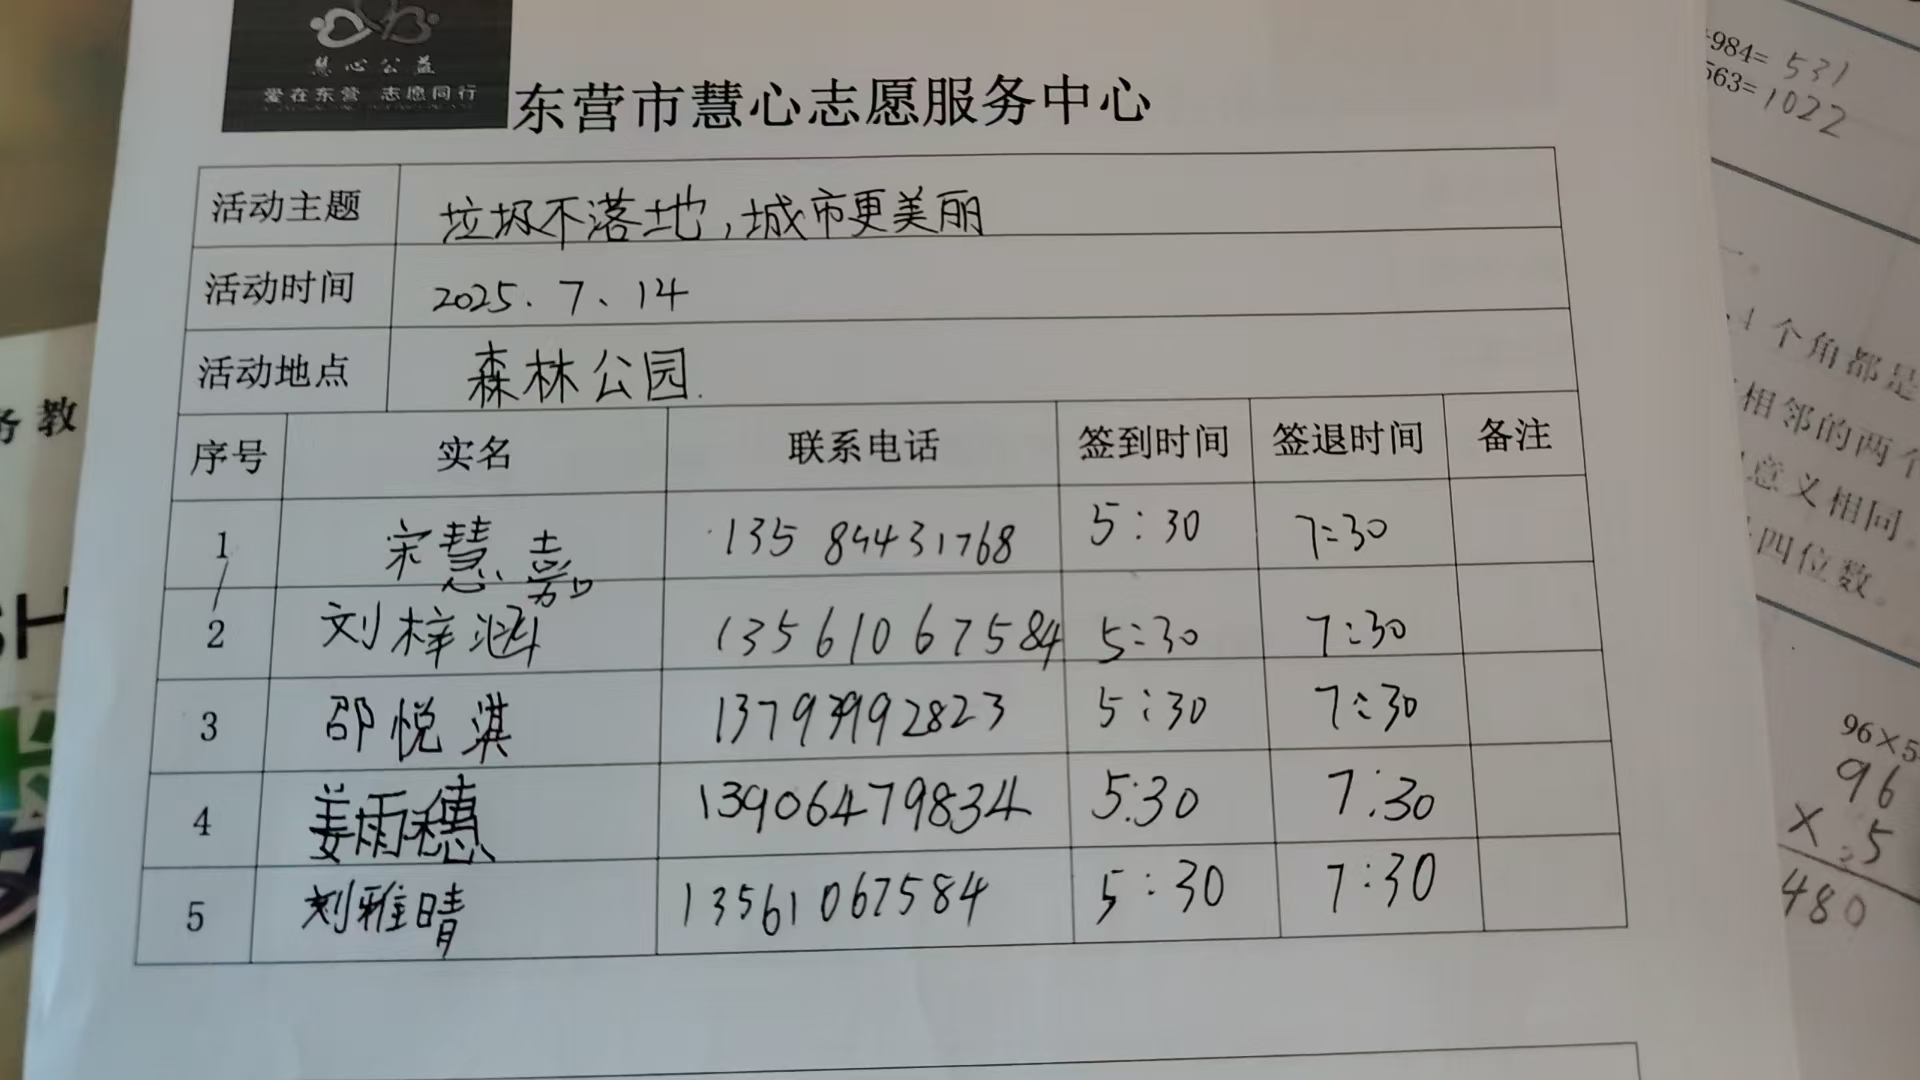 慧心公益
爱在东营 志愿同行
东营市慧心志愿服务中心
活动主题 垃圾不落地,城市更美丽
活动时间 2025.7、14
活动地点 森林公园.
序号 实名 联系电话 签到时间 签退时间 备注
1 宋慧嘉 13584431768 5:30 7:30
2 刘梓涵 13561067584 5:30 7:30
3 邵悦淇 13793992823 5:30 7:30
4 姜雨穗 13906479834 5:30 7:30
5 刘雅晴 13561067584 5:30 7:30
务教
SH
984=531
563=1022
一。
4个角都是
相邻的两个
意义相同。
四位数。
96×5
96
×25
480